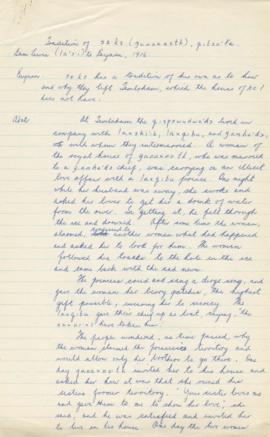 Tradition of
Sam Lewis to Beynon, 1916.
Beynon: has a tradition of his own as to how
and why they left Temlaham, which the house of
does not have.
Abel: At Temlaham the lived in
company with and
with whom they intermarried. A woman
of the royal house of who was married
to a chief, was carrying on an illicit
love affair with a One night
while her husband was away, she awoke and
asked her lover to get her a drink of water
from the river. In getting it, he fell through
the ice and drowned. After some time the woman,
alarmed, another woman what had happened
and asked her to look for him. The woman
followed his tracks to the hole in the ice
and came back with the sad news.
The princess cried and sang a dirge song, and
gave the woman her berry patches, the highest
gift possible, swearing her to secrecy. The
gave their chief up as lost, saying, "The
have taken him."
The people wondered, as time passed, why
the woman claimed the princess's territory and
would allow only her brothers to go there. One
day invited her to his house and
asked her how it was that she owned his
sister's former territory. "Your sister loves me
and gave them to me to show her love," she
said, and he was satisfied and invited her
to live in his house. One day the two women